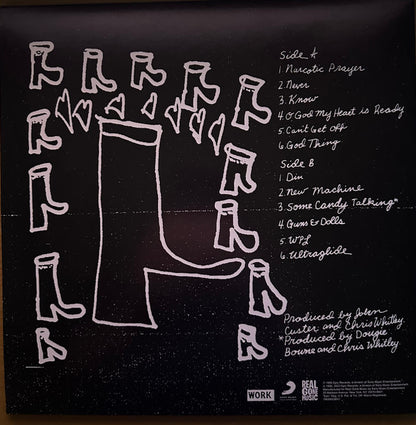 Side A
1. Narcotic Prayer
2. Never
3. Know
4. O God My Heart is Ready
5. Can't Get Off
6. God Thing
Side B
1. Din
2. New Machine
3. Some Candy Talking*
4. Guns & Dolls
5. WPL
6. Ultraglide
Produced by Johan
Custer and Chris Whitley
*Produced by Dougie
Bowne and Chris Whitley
WORK
REAL
GONE
MUSIC